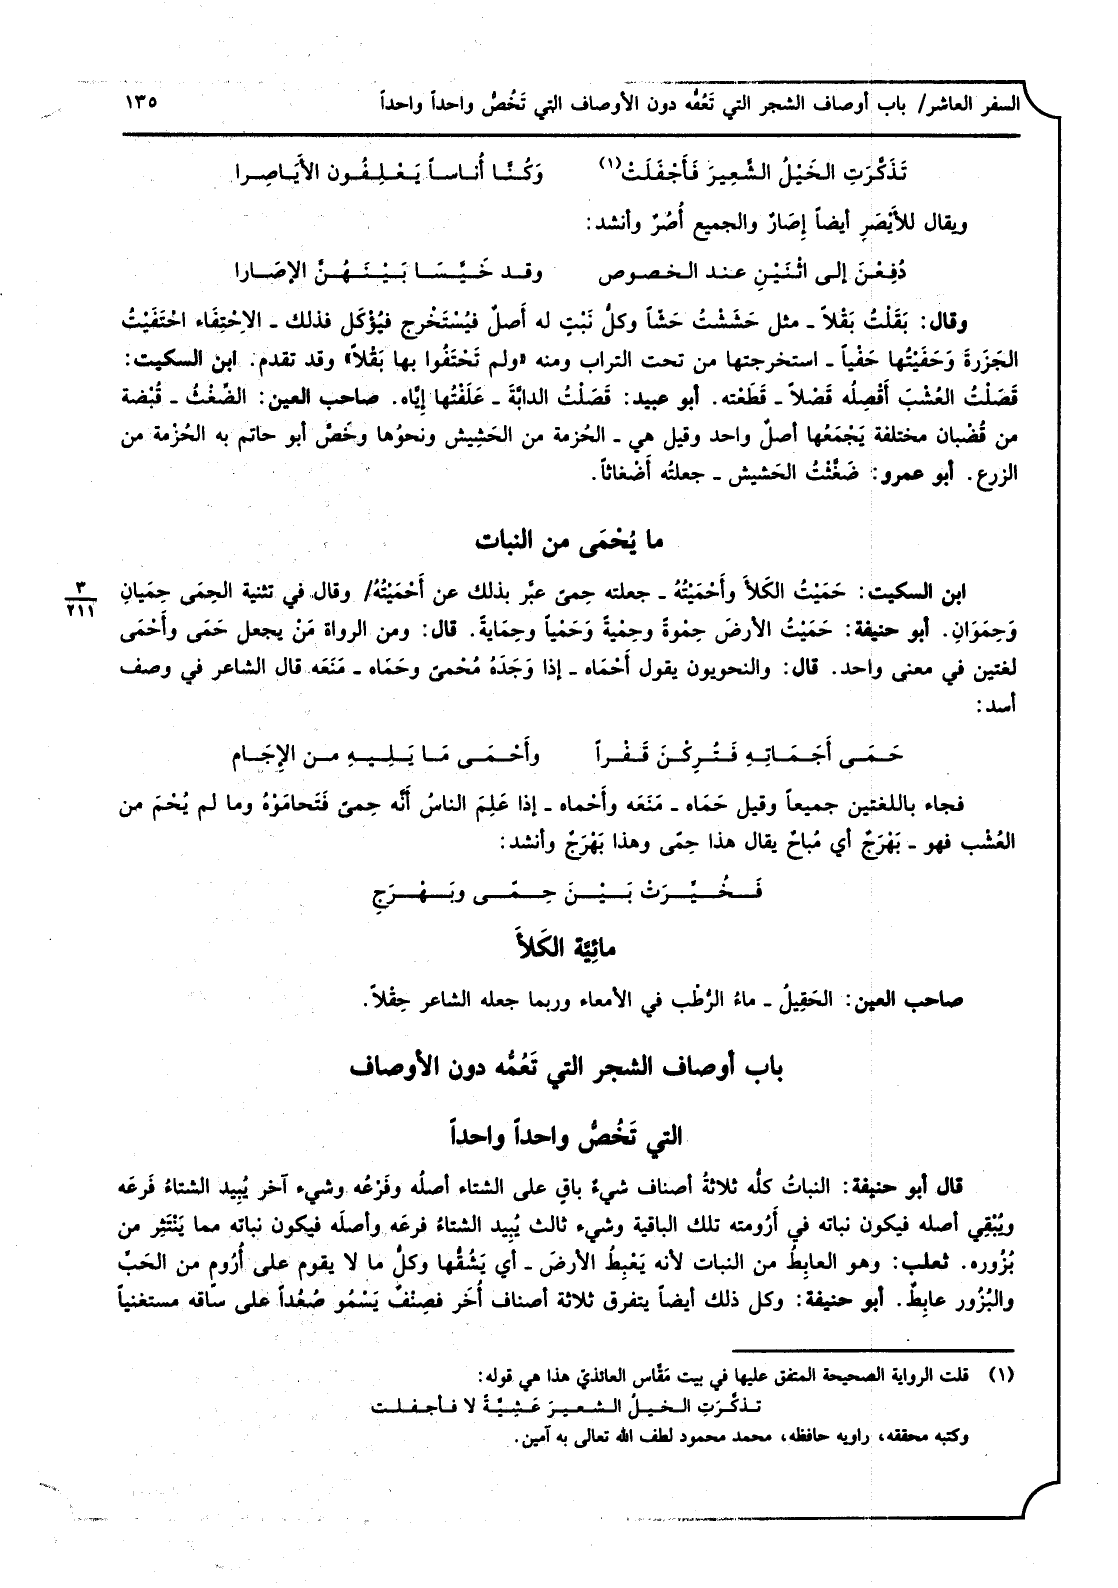 السفر العاشر/ باب أوصاف الشجر التي تَعُمُّه دون الأوصاف التي تَخُصُّ واحداً واحداً ١٣٥
تَذَكَّرَتِ الخَيْلُ الشَّعِيرَ فَأَجْفَلَتْ(١) وَكُنَّا أُناساً يَعْلِفُون الأَيَاصِرا
ويقال للأَيْصَرِ أيضاً إصَارٌ والجميع أُصُرٌ وأنشد:
دُفِعْنَ إلى اثْنَيْنِ عند الخصوص وقد خَيَّسَا بَيْنَهُنَّ الإصَارا
وقال: بَقَلْتُ بَقْلاً ـ مثل حَشَشْتُ حَشّاً وكلُّ نَبْتٍ له أصلٌ فيُسْتَخْرج فيُؤْكَل فذلك ـ الاحْتِفَاء احْتَفَيْتُ
الجَزَرةَ وَحَفَيْتُها حَفْياً ـ استخرجتها من تحت التراب ومنه «ولم تَحْتَفُوا بها بَقْلاً» وقد تقدم. ابن السكيت:
قَصَلْتُ العُشْبَ أَقْصِلُه قَصْلاً ـ قَطَعْته. أبو عبيد: قَصَلْتُ الدابَّةَ ـ عَلَفْتُها إيَّاه. صاحب العين: الضِّغْثُ ـ قُبْضة
من قُضْبان مختلفة يَجْمَعُها أصلٌ واحد وقيل هي ـ الحُزمة من الحَشِيش ونحوُها وخَصَّ أبو حاتم به الحُزْمة من
الزرع. أبو عمرو: ضَغَّثْتُ الحَشيش ـ جعلته أَضْغاثاً.
ما يُحْمَى من النبات
ابن السكيت: حَمَيْتُ الكَلأَ وأَحْمَيْتُهُ ـ جعلته حِمىً عبَّر بذلك عن أَحْمَيْتُهُ/ وقال في تثنية الحِمَى حِمَيانِ
٣
٢١١
وَحِمَوَانِ. أبو حنيفة: حَمَيْتُ الأرضَ حِمْوةً وحِمْيةً وَحَمْياً وحِمَايةً. قال: ومن الرواة مَنْ يجعل حَمَى وأَحْمَى
لغتين في معنى واحد. قال: والنحويون يقول أَحْمَاه ـ إذا وَجَدَهُ مُحْمىً وحَمَاه ـ مَنَعَه قال الشاعر في وصف
أسد:
حَمَى أَجَمَاتِهِ فَتُرِكْنَ قَفْراً وأَحْمَى مَا يَلِيهِ من الإجَام
فجاء باللغتين جميعاً وقيل حَمَاه ـ مَنَعَه وأَحْماه ـ إذا عَلِمَ الناسُ أنَّه حِمىً فَتَحامَوْهُ وما لم يُحْمَ من
العُشْب فهو ـ بَهْرَجٌ أي مُباحٌ يقال هذا حِمّى وهذا بَهْرَجٌ وأنشد:
فَخُيِّرَتْ بَيْنَ حِمّى وبَهْرَجِ
مائِيَّة الكَلأَ
صاحب العين: الحَقِيلُ ـ ماءُ الرُّطْب في الأمعاء وربما جعله الشاعر حِقْلاً.
باب أوصاف الشجر التي تَعُمُّه دون الأوصاف
التي تَخُصُّ واحداً واحداً
قال أبو حنيفة: النباتُ كلُّه ثلاثةُ أصناف شيءٌ باقٍ على الشتاء أصلُه وفَرْعُه وشيء آخر يُبِيد الشتاءُ فَرعَه
ويُبْقِي أصله فيكون نباته في أَرُومته تلك الباقية وشيء ثالث يُبِيد الشتاءُ فرعَه وأصلَه فيكون نباته مما يَنْتَثِر من
بُزُوره. ثعلب: وهو العابِطُ من النبات لأنه يَعْبِطُ الأرضَ ـ أي يَشُقُّها وكلُّ ما لا يقوم على أُرُومٍ من الحَبِّ
والبُزُور عابِطٌ. أبو حنيفة: وكل ذلك أيضاً يتفرق ثلاثة أصناف أُخَر فصِنْفٌ يَسْمُو صُعُداً على ساقه مستغنياً
(١) قلت الرواية الصحيحة المتفق عليها في بيت مَقَّاس العائذيّ هذا هي قوله:
تذكَّرَتِ الخيلُ الشعيرَ عَشِيَّةً لا فأجفلت
وكتبه محققه، راويه حافظه، محمد محمود لطف الله تعالى به آمين.